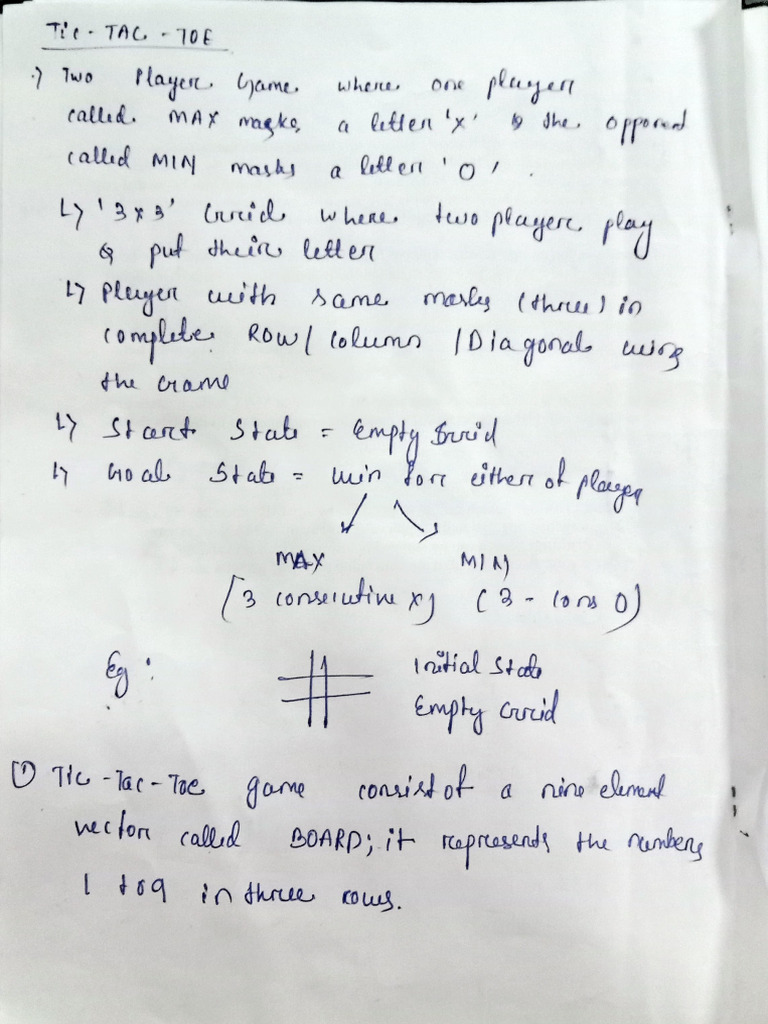 TIC - TAC - TOE
Two Player Game where one player
called MAX marks a letter 'X' & the opponent
called MIN marks a letter 'O'.
↳ '3x3' Grid where two player play
& put their letter
↳ Player with same marks (three) in
complete Row / Column / Diagonal wins
the Game
↳ Start State = Empty Grid
↳ Goal State = win for either of player
MAX MIN
(3 consecutive X) (3 - cons O)
Eg : Initial State
Empty Grid
① Tic - Tac - Toe game consist of a nine element
vector called BOARD; it represents the numbers
1 to 9 in three rows.